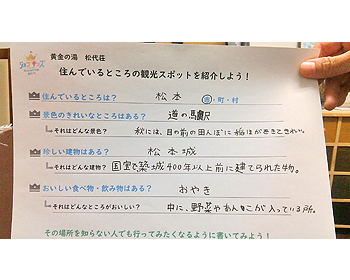 黄金の湯 松代荘
住んでいるところの観光スポットを紹介しよう！
住んでいるところは？ 松本 市・町・村
景色のきれいなところはある？ 道の駅
それはどんな景色？ 秋には、目の前の田んぼに稲ほがでてきれい。
珍しい建物はある？ 松本城
それはどんな建物？ 国宝で築城400年以上前に建てられた物。
おいしい食べ物・飲み物はある？ おやき
それはどんなところがおいしい？ 中に、野菜やあんこが入っている所。
その場所を知らない人でも行ってみたくなるように書いてみよう！